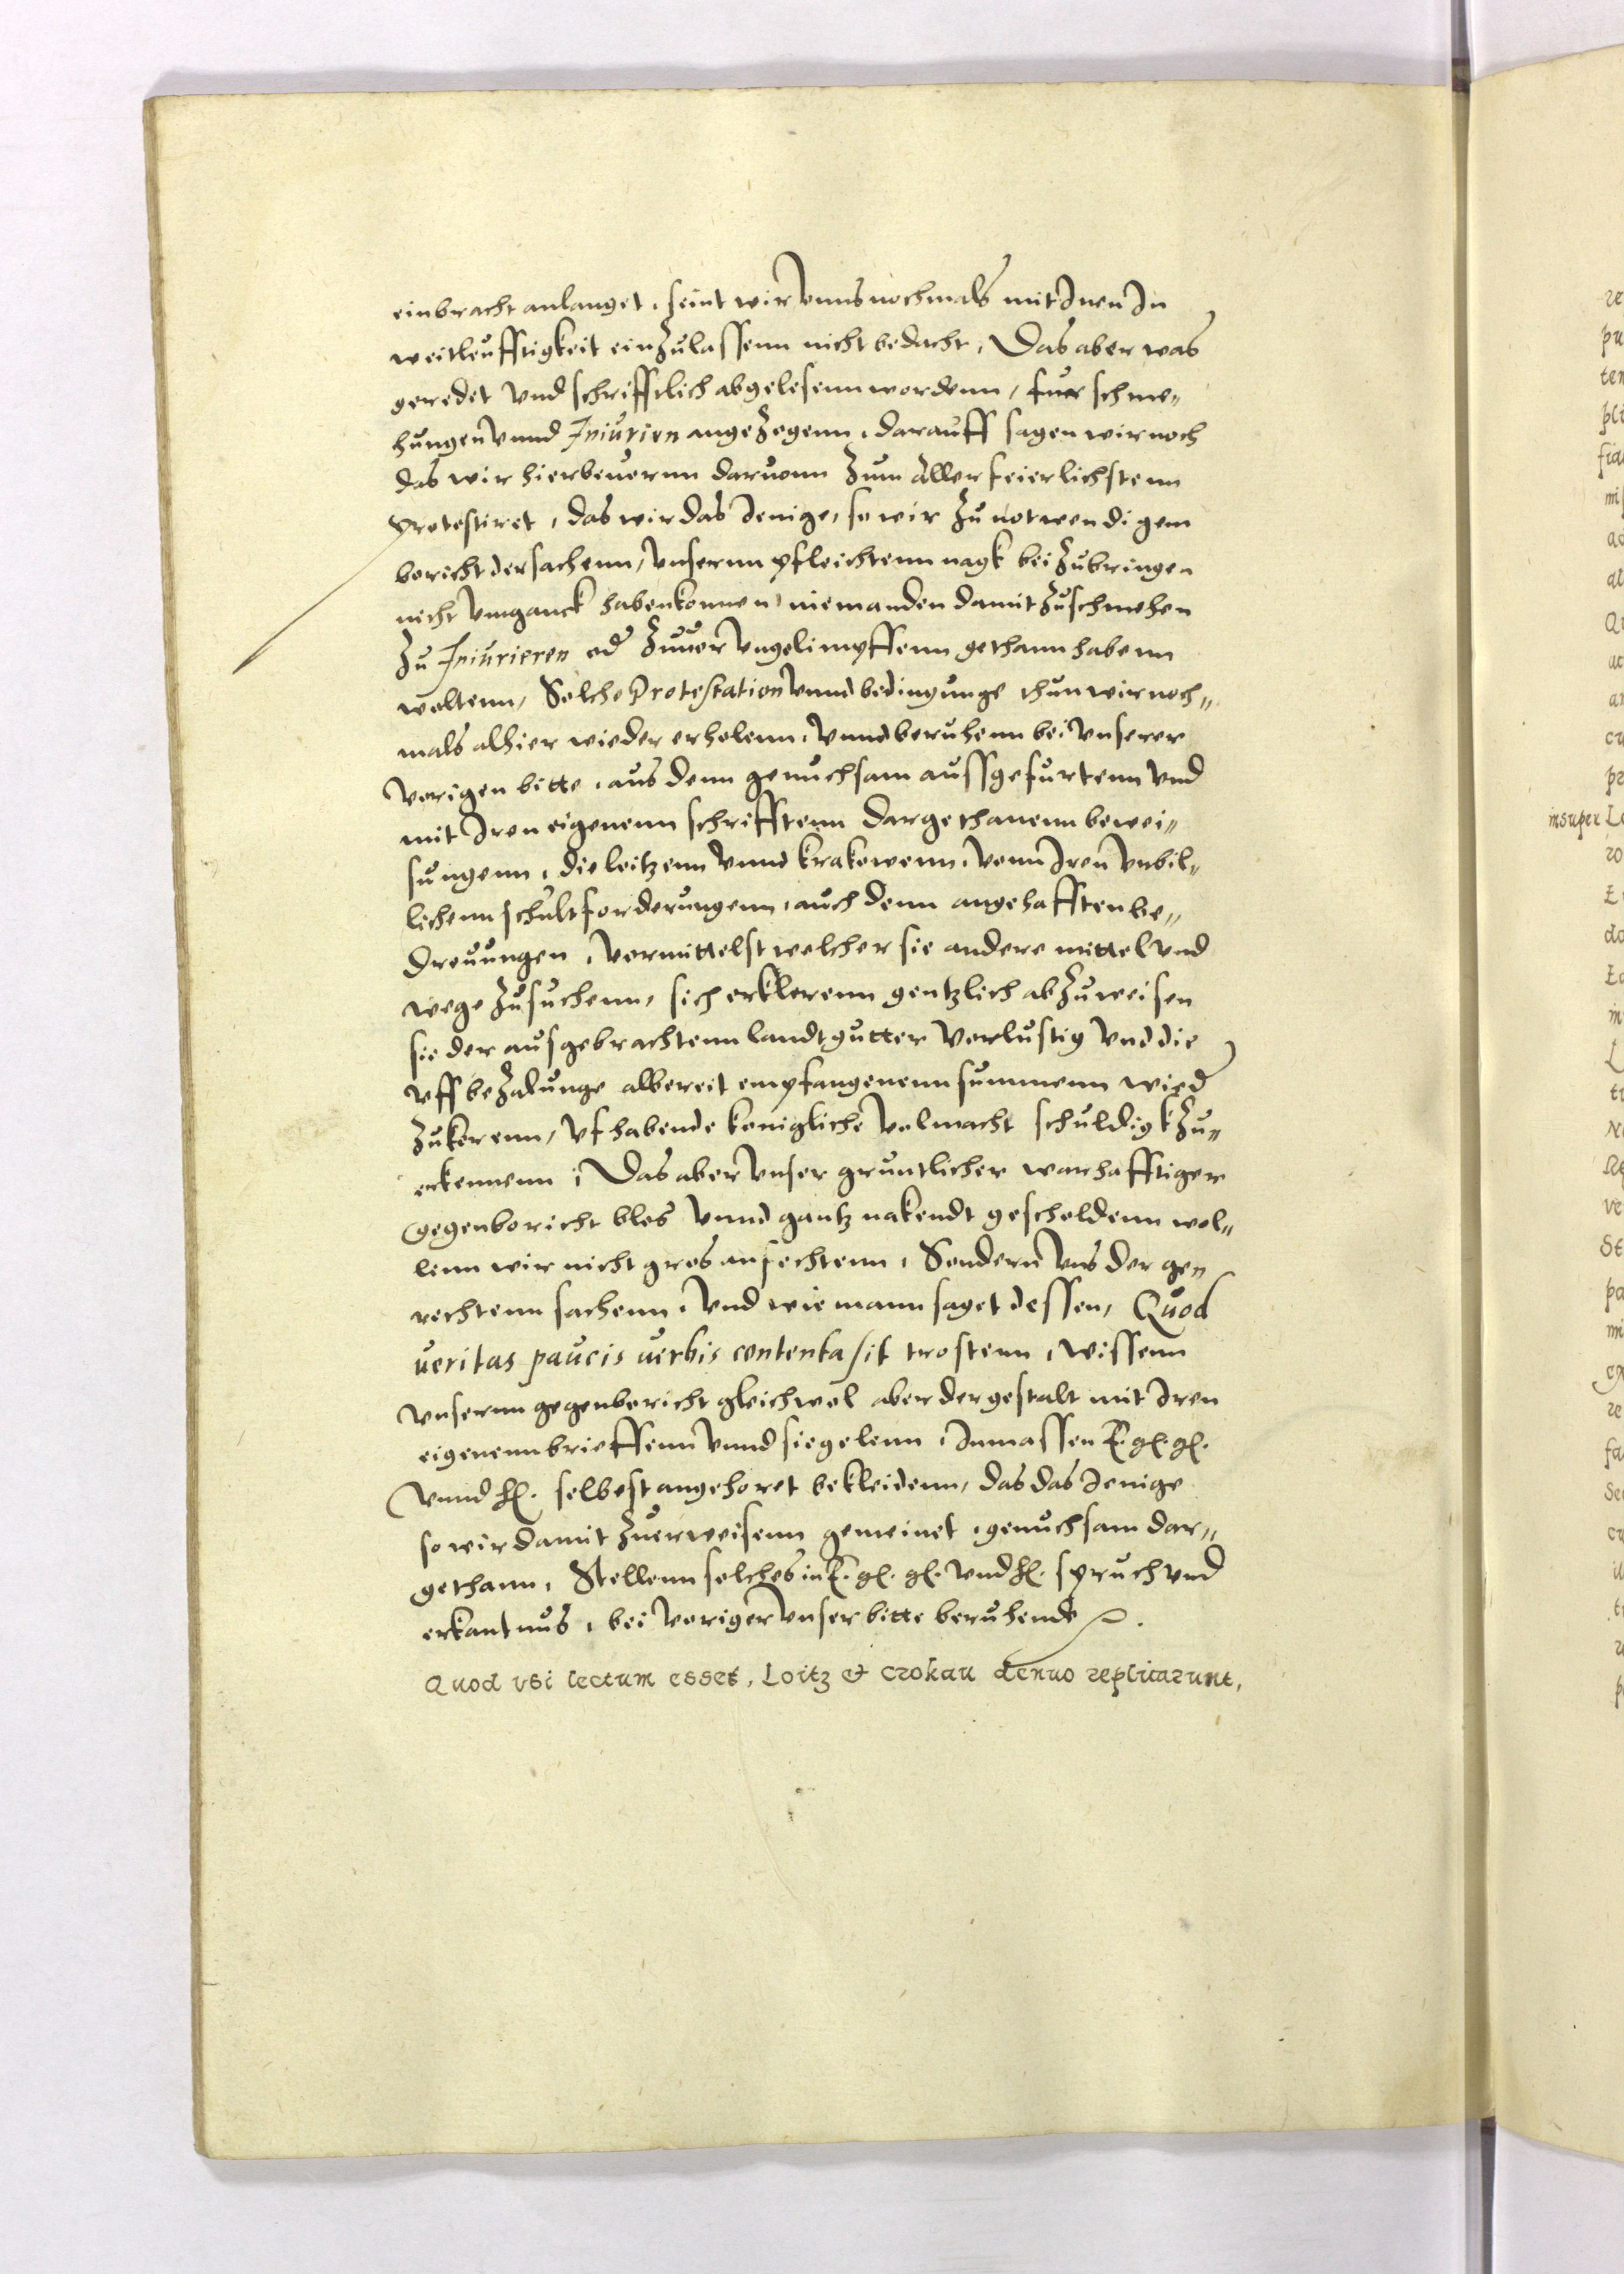 einbracht anlanget, seint wir vnns nochmals mit Inen In
weitleufftigkeit einzulassenn nicht bedacht, Das aber was
geredet vnd schrifftlich abgelesenn wordenn, fuer schme„
hungen vnnd Iniurien angezogenn, darauff sagen wir noch
das wir hierbeuornn daruonn zum Allerfeierlichstenn
protestiret, das wir das Jenige, so wir zu notwendigem
bericht der sachenn, vnsernn pfleichtenn nagk beizubringen
nicht vmganck haben konnen, niemanden damit zuschmehen
zu Iniurieren od zuuervngelimpffenn gethann habenn
woltenn, Solche Protestation vnnd bedingunge thun wir noch„
mals alhier wieder erholenn, vnnd beruhenn bei vnserer
vorigen bitte, aus denn genuchsam aussgefurtenn vnd
mit Iren eigenenn schrifftenn dargethanenn bewei„
sungenn, die loitzenn vnnd krakowenn, vonn Iren vnbil„
lichenn schultforderungenn, auch denn angehafften be„
dreuungen, vermittelst welcher sie andere mittel vnd
wege zusuchenn, sich erklerenn gentzlich abzuweisen
sie der ausgebrachtenn landtgutter verlustig vnd die
vff bezalunge albereit empfangenenn summenn wied
zukerenn, vf habende konigliche volmacht schuldigk zu„
erkennenn, Das aber vnser gruntlicher warhafftiger
gegenbericht blos vnnd gantz nakendt gescholdenn wol„
lenn wir nicht gros anfechtenn, Sondern vns der ge„
rechtenn sachenn, vnd wie mann saget dessen, Quod
ueritas paucis uerbis contenta sit trostenn, wissenn
vnsernn gegenbericht gleichwol aber dergestalt mit Iren
eigenenn brieffenn vnnd siegelenn, Inmassen E. gl. gl.
vnnd hl. selbest angehoret bekleidenn, das das Jenige
so wir damit zuerweisenn gemeinet, genuchsam dar„
gethann, Stellenn solches in E. gl. gl. vnd hl. spruch vnd
erkantnus, bei voriger vnser bitte beruhende.
Quod vbi lectum esset, Loitz et Crokau denuo replicarunt,
insuper